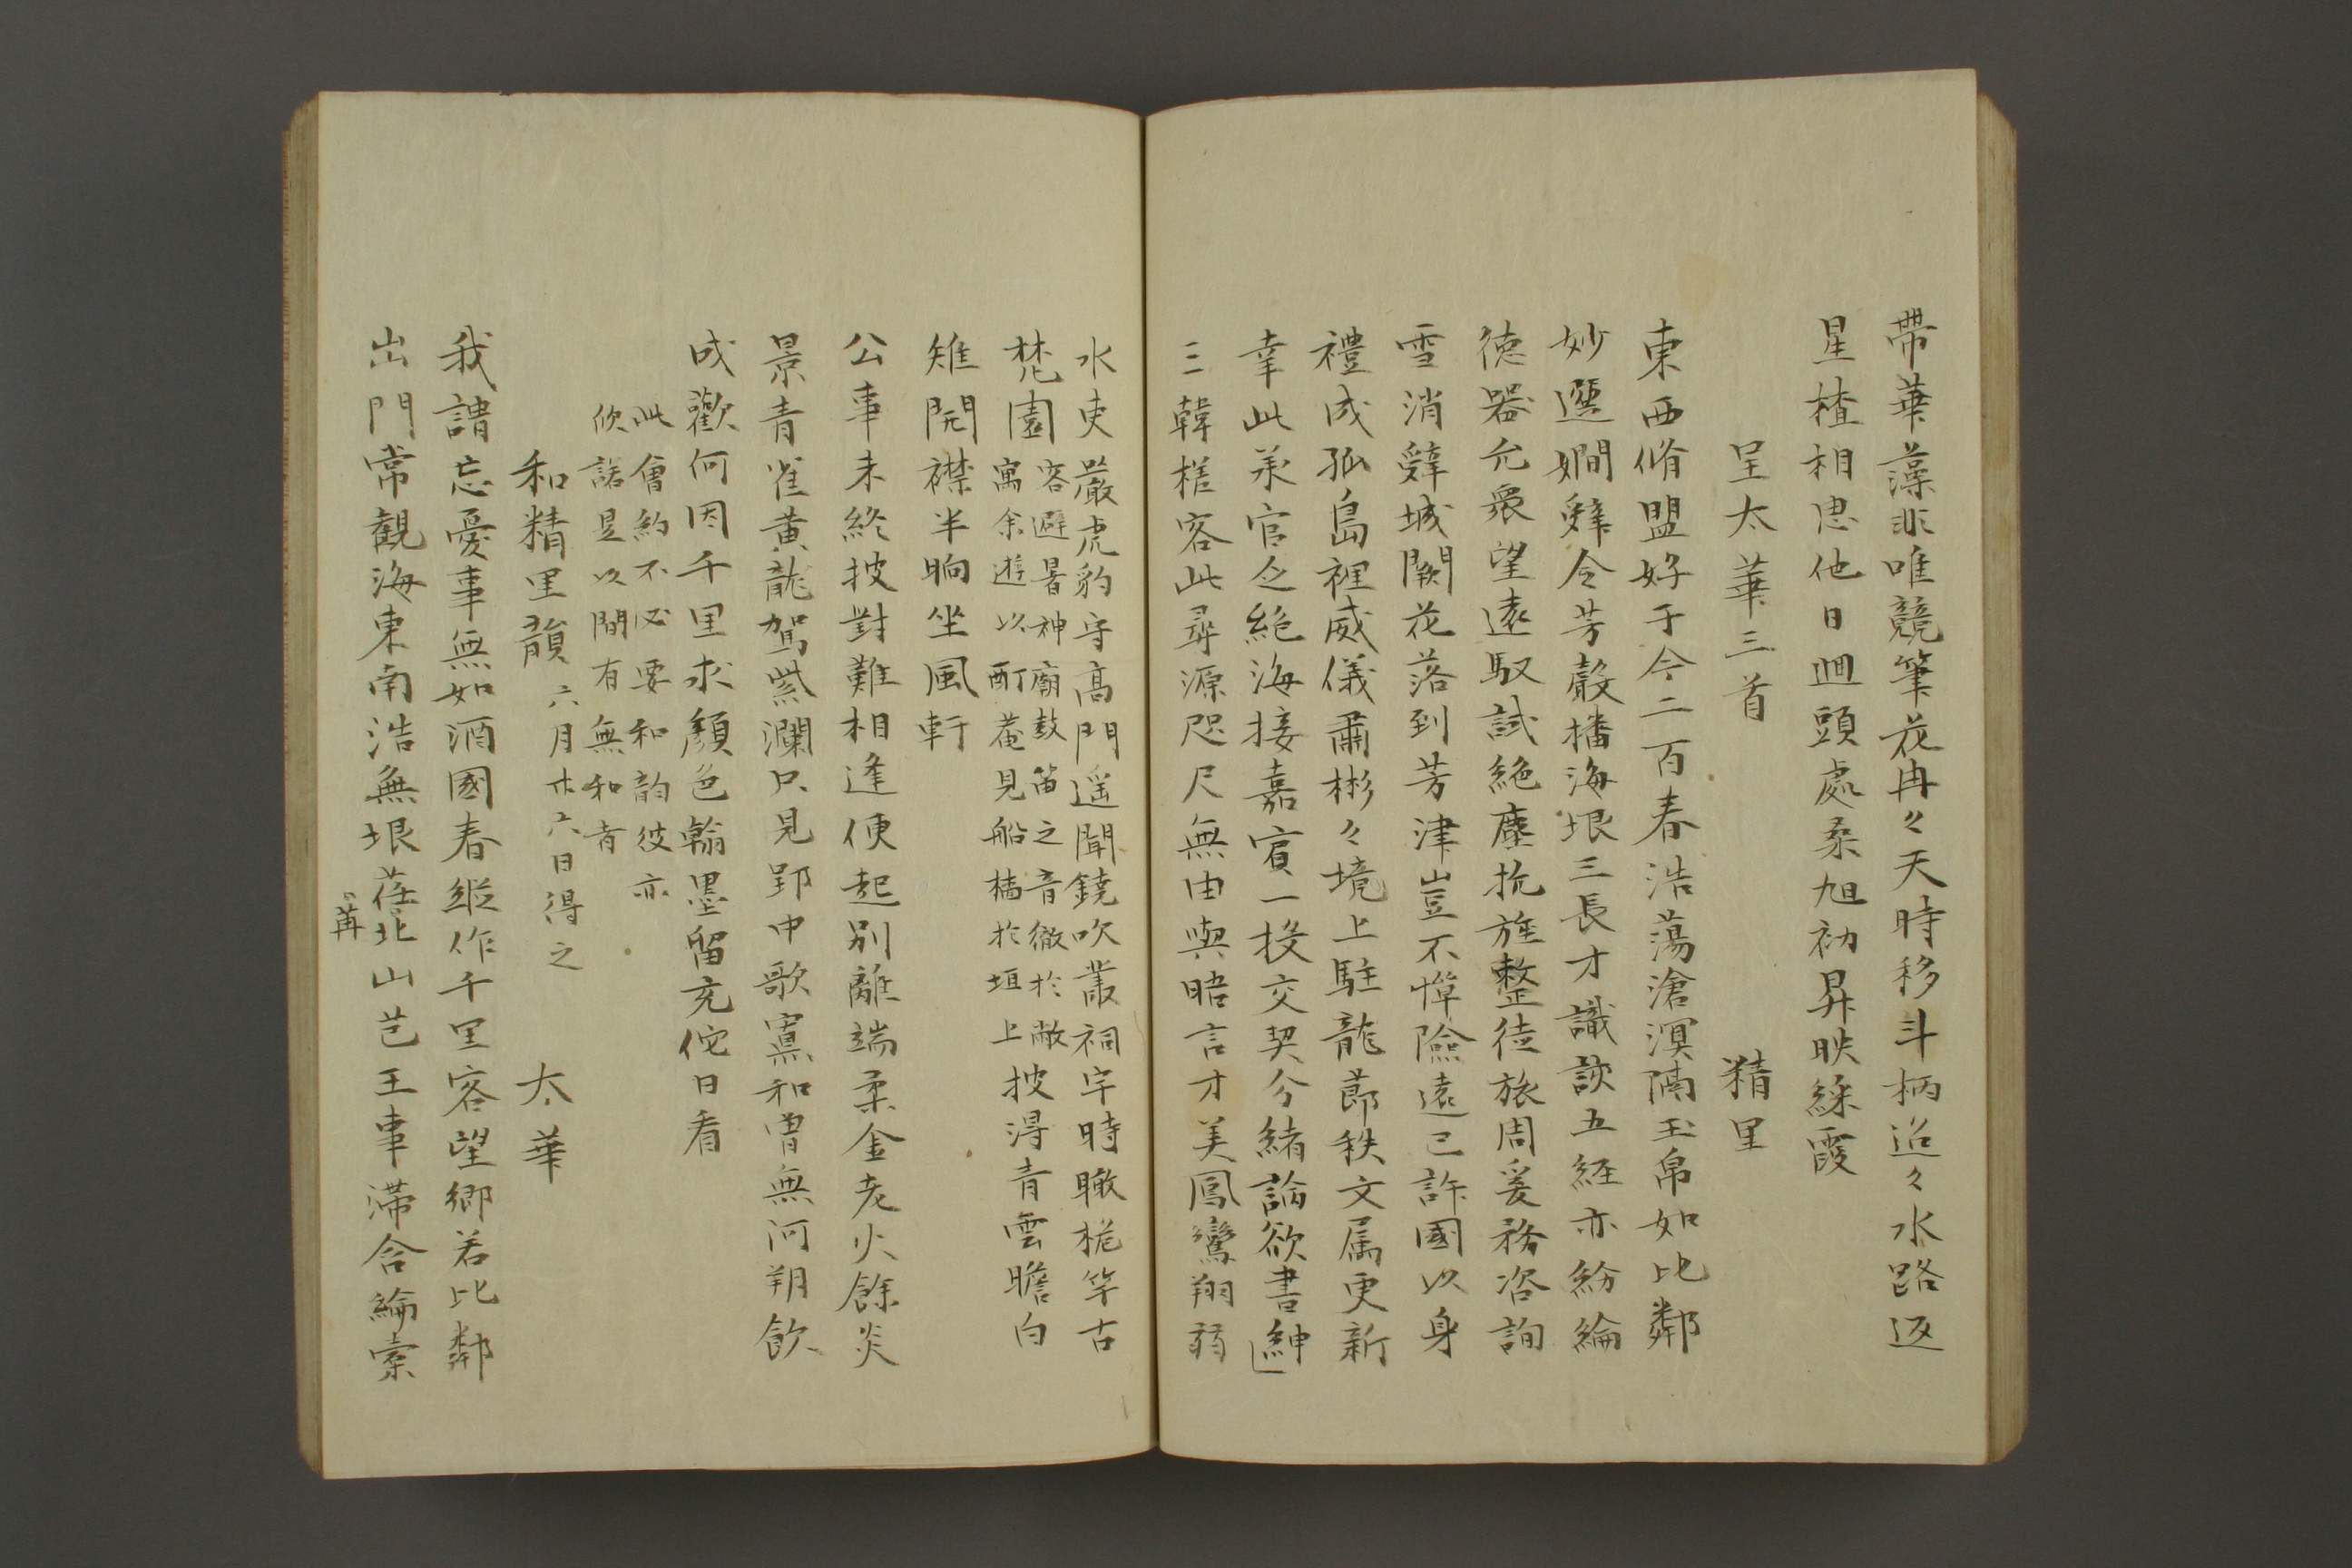 帶華藻非唯競筆花冉々天時移斗柄迢々水路返
星楂相思他日迴頭處柔旭初昇映綵霞
呈太華三首　精里
東西脩盟好于今二百春浩蕩滄溟隔玉帛如比鄰
妙選嫺辤令芳聲播海垠三長才識談五経亦紛綸
徳器允衆望遠馭試絶塵抗旌整徒旅周爰務咨詢
雪消辤城闕花落到芳津豈不憚險遠已許國以身
禮成孤島裡威儀肅彬々境上駐龍節秩文属更新
幸此承官乏絶海接嘉賓一投交契分緒論欲書紳
三韓槎客此尋源咫尺無由與晤言才美鳳鸞翔翮
水吏嚴虎豹守高門遥聞鐃吹叢祠宇時瞰桅竿古
梵園
客避暑神廟鼓笛之音徹於敝
寓余遊以酊菴見船樯於垣上
披得青雲瞻白
雉開襟半晌坐風軒
公事未終披對難相逢便起別離端柔金老火餘炎
景青雀黄龍駕紫瀾只見郢中歌寡和曽無河朔飲
成歡何因千里求顏色翰墨留充佗日看
此會約不必要和韵彼亦
欣諾是以間有無和者
和精里韻　六月廾六日得之　太華
我謂忘憂事無如酒國春縦作千里客望郷若比鄰
出門常観海東南浩無垠荏北山芑王事滞含綸索
苒